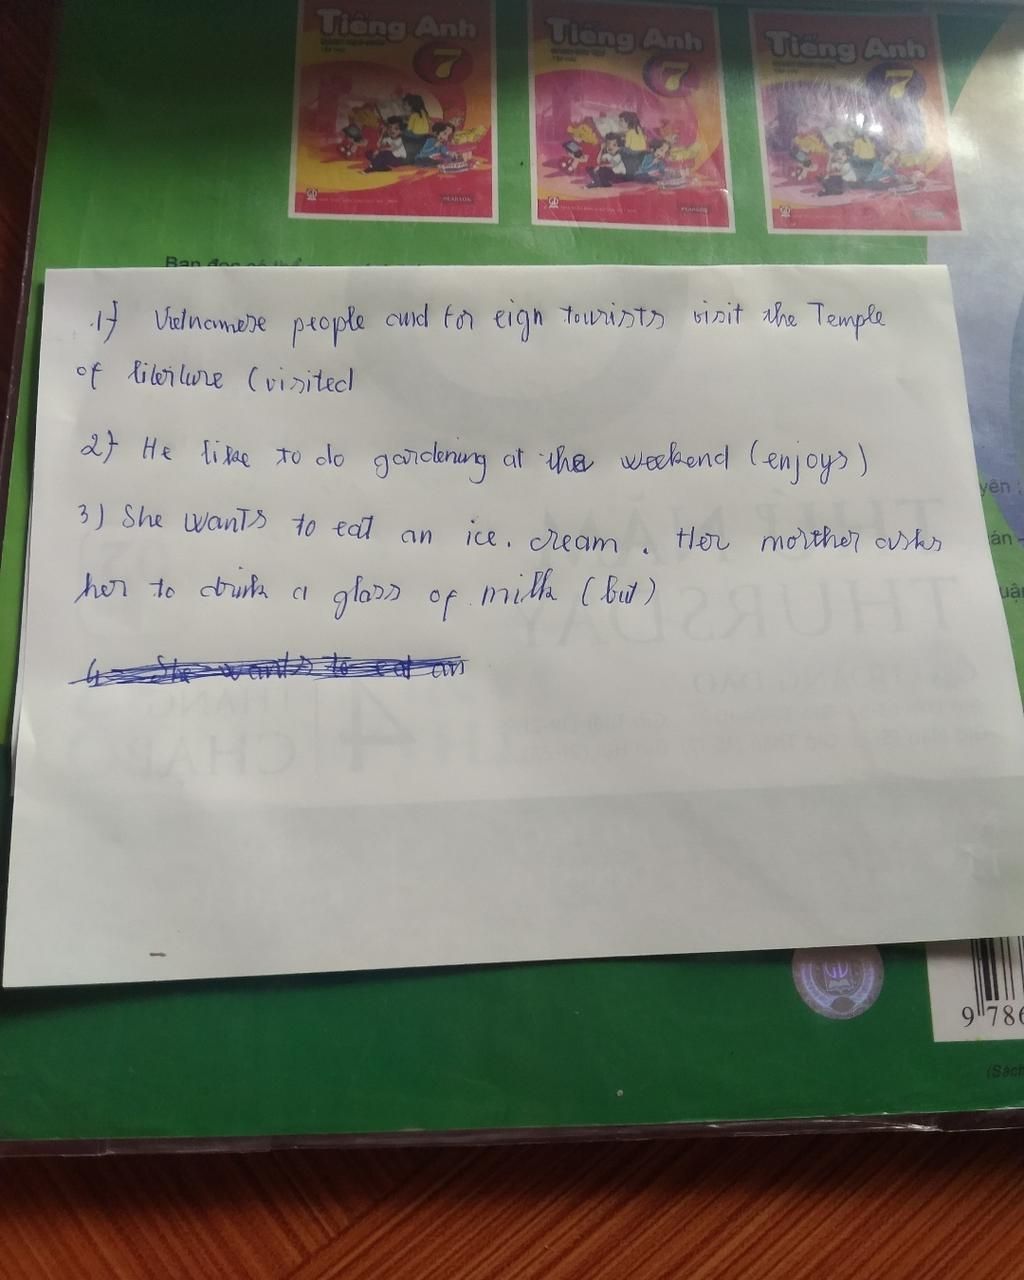 Tiếng Anh
7
Tiếng Anh
7
Tiếng Anh
7
PEARSON
PEARSON
Bạn đọc có thể
1) Vietnamese people and for eign tourists visit the Temple
of (visited
2) He like to do gardening at the weekend (enjoys)
3) She wants to eat an ice. cream. Her morther asks
her to drink a glass of milk (but)
4 She wants to eat an
THỨ NĂM
THURSDAY
4
9 786
(Sách